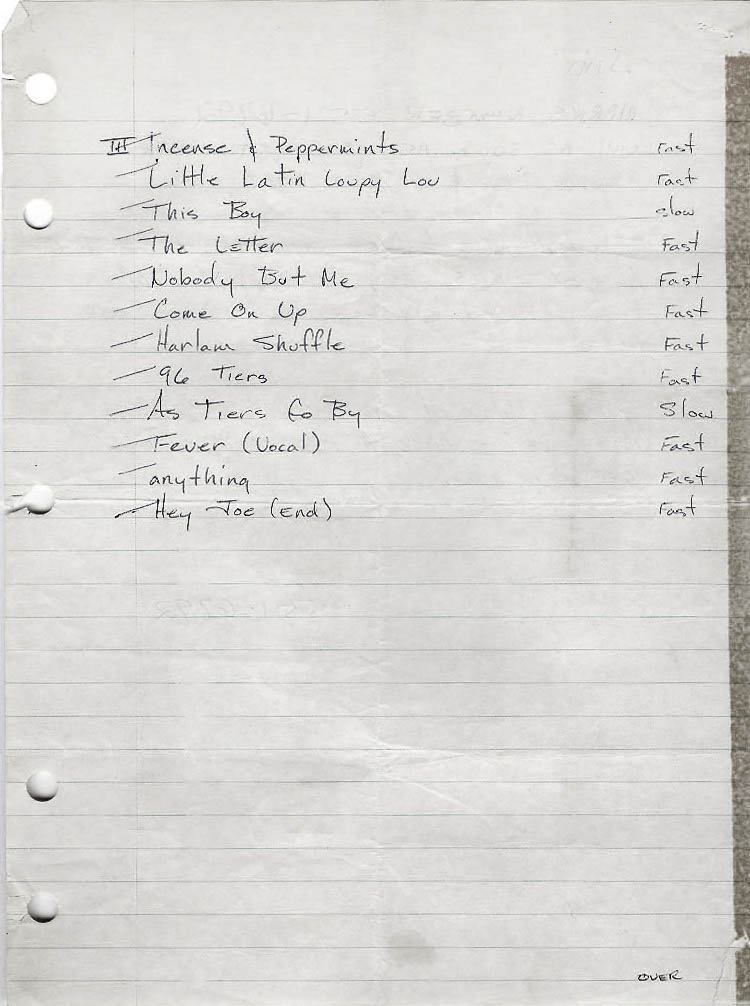 III Incense & Peppermints Fast
Little Latin Loupy Lou Fast
This Boy Slow
The Letter Fast
Nobody But Me Fast
Come On Up Fast
Harlam Shuffle Fast
96 Tiers Fast
As Tiers Go By Slow
Fever (Vocal) Fast
anything Fast
Hey Joe (End) Fast
OVER